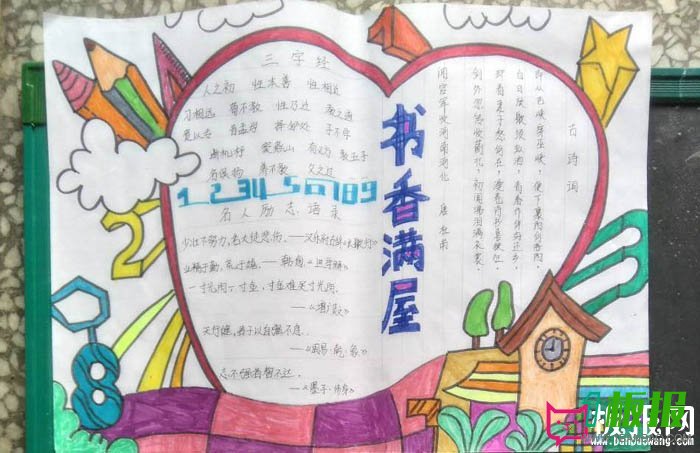 三字经
人之初 性本善 性相近
习相远 苟不教 性乃迁 教之道
贵以专 昔孟母 择邻处 子不学
断机杼 窦燕山 有义方 教五子
名俱扬 养不教 父之过
123456789
名人励志语录
少壮不努力,老大徒悲伤。——汉乐府古辞《长歌行》
业精于勤,荒于嬉。——韩愈《进学解》
一寸光阴一寸金,寸金难买寸光阴。
——《增广贤文》
天行健,君子以自强不息。
——《周易·乾·象》
志不强者智不达。
——《墨子·修身》
书香满屋
古诗词
闻官军收河南河北 唐 杜甫
剑外忽传收蓟北,初闻涕泪满衣裳。
却看妻子愁何在,漫卷诗书喜欲狂。
白日放歌须纵酒,青春作伴好还乡。
即从巴峡穿巫峡,便下襄阳向洛阳。
1
2
3
8
板报网
www.banbaowang.com